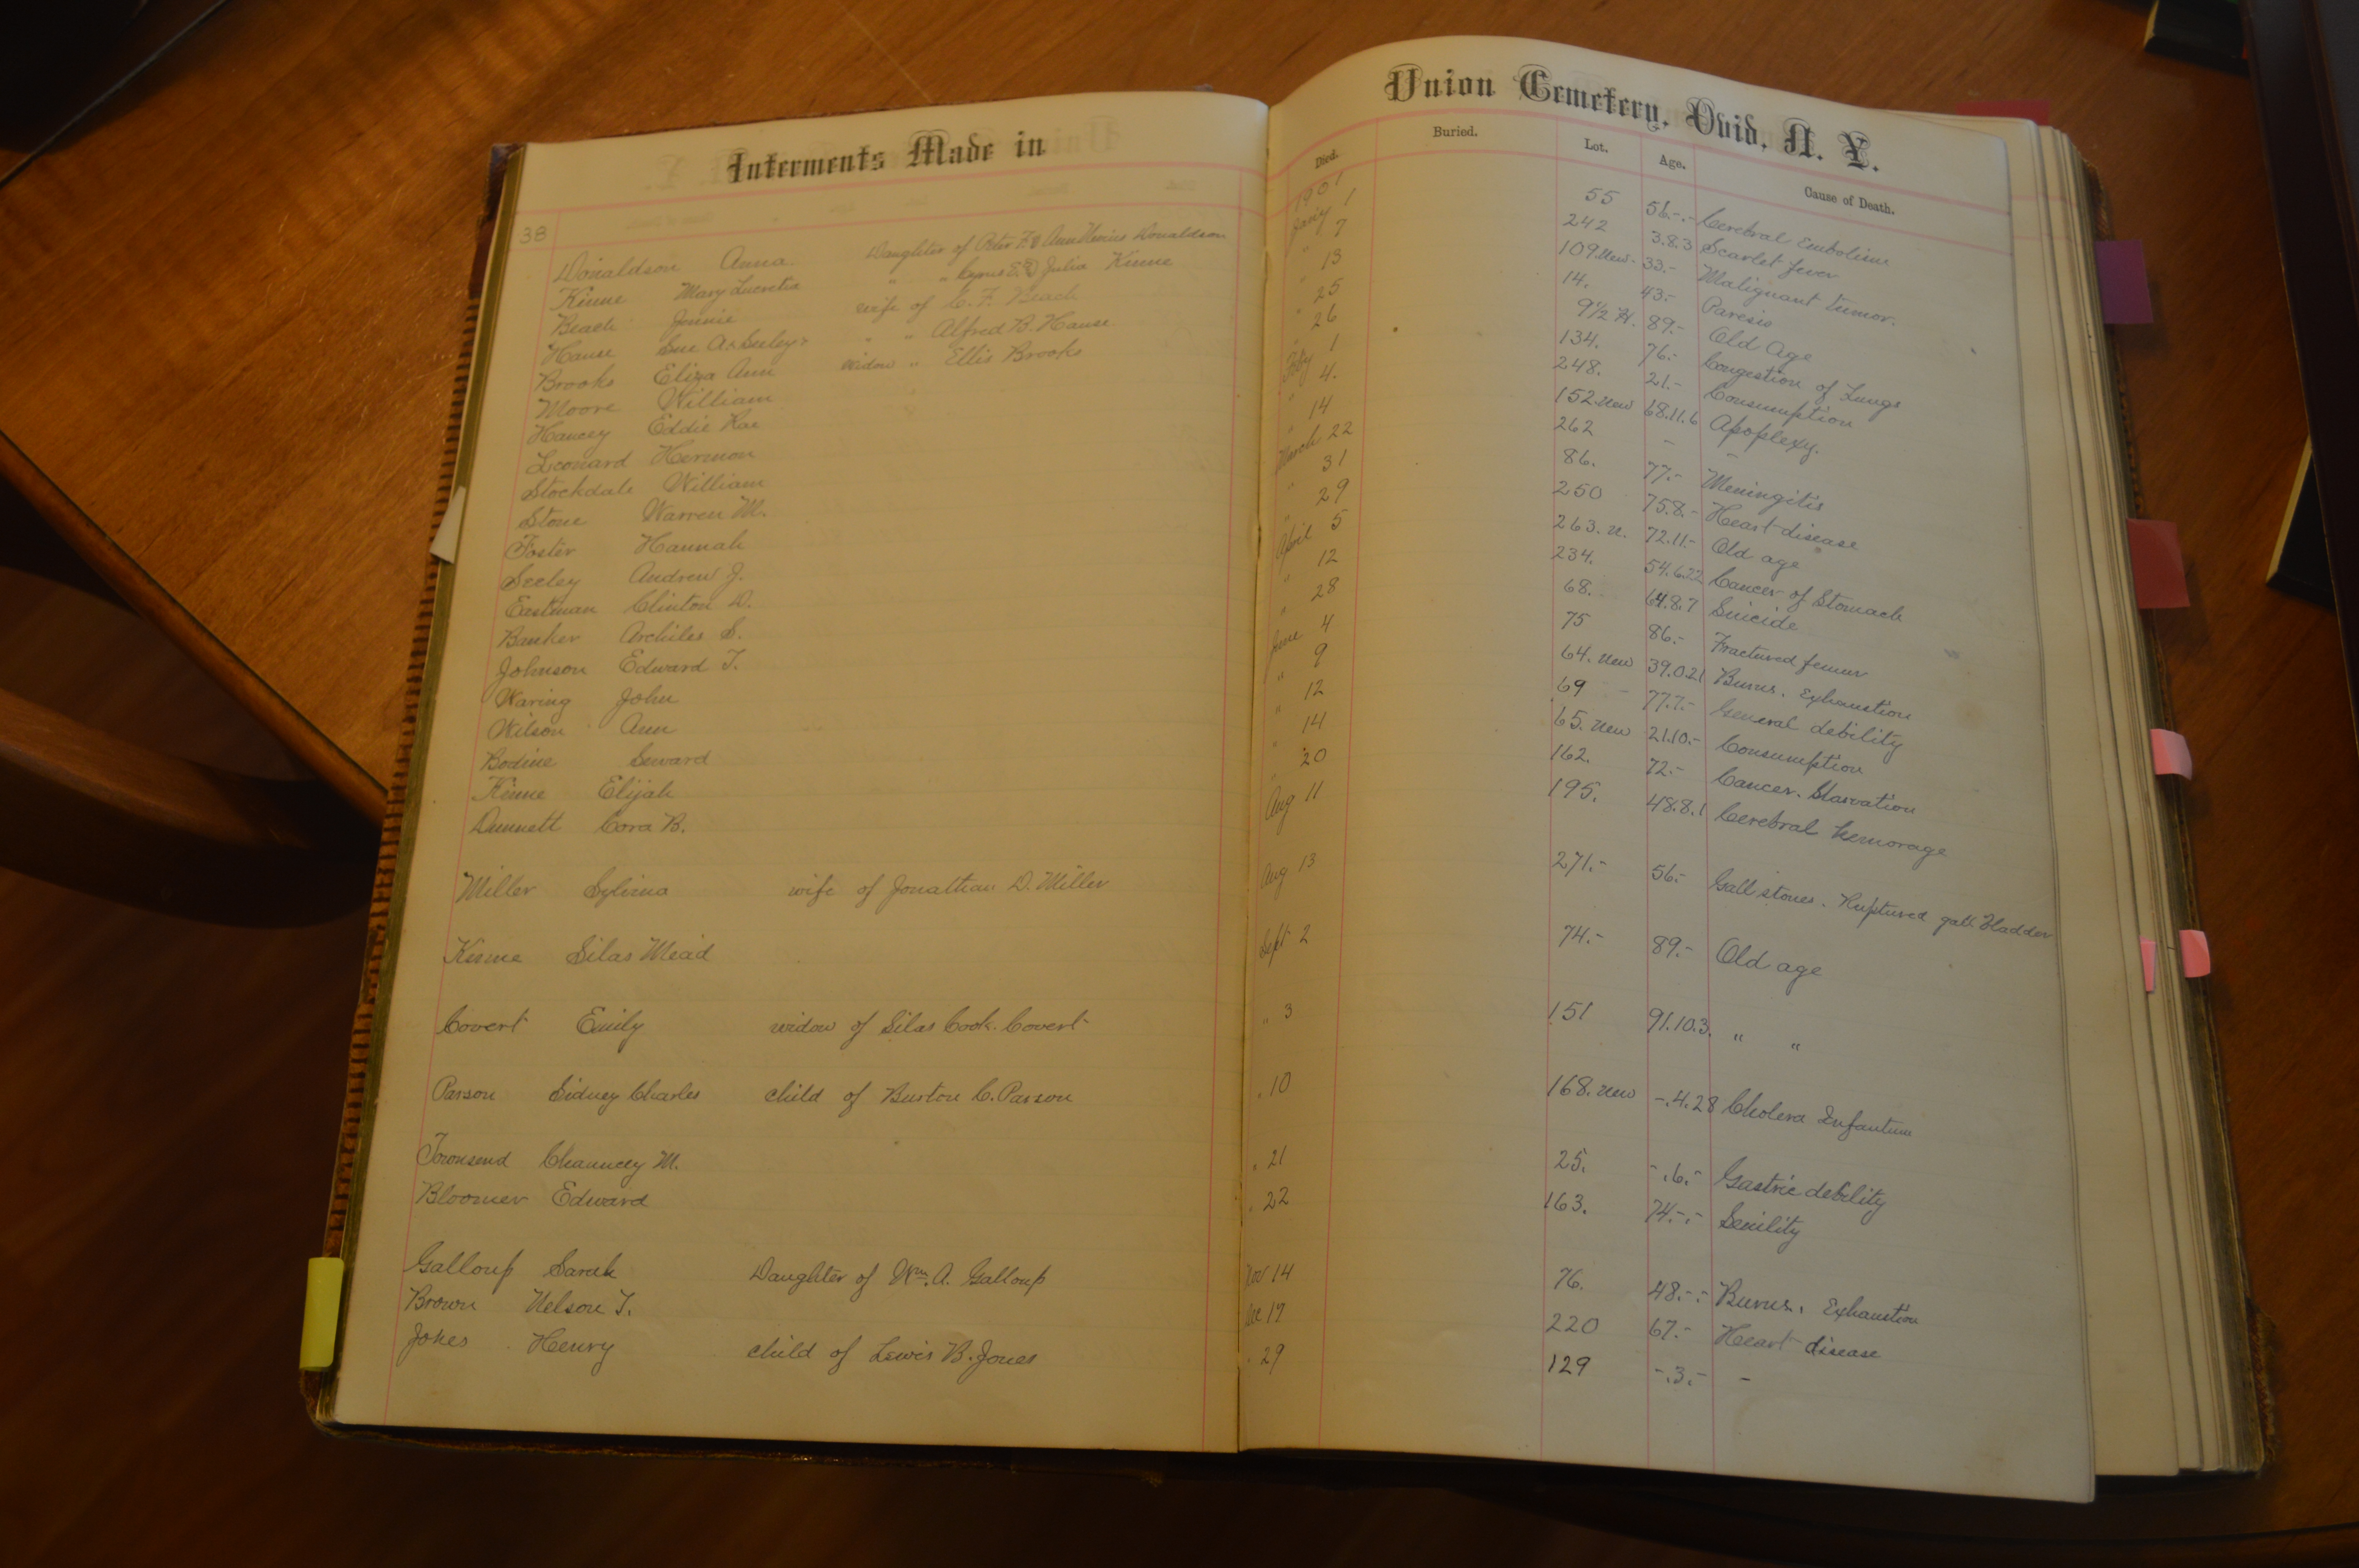 Interments Made in Union Cemetery, Ovid, N. Y.
Died. Buried. Lot. Age. Cause of Death.
38
1901
Donaldson Anna. Daughter of Peter F. & Ann Nevius Donaldson Jan'y 1 55 56.-.- Cerebral Embolism
Kinne Mary Lucretia " " Cyrus E. & Julia Kinne " 7 242 3.8.3 Scarlet fever
Beach Jennie wife of C. F. Beach " 13 109. New. 33.- Malignant tumor.
Hause Sue A. Seeley " " Alfred B. Hause " 25 14. 43.- Paresis
Brooks Eliza Ann widow " Ellis Brooks " 26 9½ H. 89.- Old Age
Moore William Feby 1 134. 76.- Congestion of Lungs
Hancey Eddie Rae " 4. 248. 21.- Consumption
Leonard Hermon " 14 152. New 68.11.6 Apoplexy.
Stockdale William March 22 262 - -
Stone Warren M. " 31 86. 77.- Meningitis
Foster Hannah " 29 250 75.8.- Heart disease
Seeley Andrew J. April 5 263. n. 72.11.- Old age
Eastman Clinton D. " 12 234. 54.6.22 Cancer of Stomach
Banker Archiles S. " 28 68. 64.8.7 Suicide
Johnson Edward T. June 4 75 86.- Fractured femur
Waring John " 9 64. New 39.0.21 Burns. Exhaustion
Wilson Ann " 12 69 77.7.- General debility
Bodine Seward " 14 65. New 21.10.- Consumption
Kinne Elijah " 20 162. 72.- Cancer. Starvation
Dunnett Cora B. Aug 11 195. 48.8.1 Cerebral hemorage
Miller Sylvina wife of Jonathan D. Miller Aug 13 271.- 56.- Gall stones. Ruptured gall bladder
Kinne Silas Mead Sept 2 74.- 89.- Old age
Covert Emily widow of Silas Cook Covert " 3 151 91.10.3. " "
Parson Sidney Charles child of Burton C. Parson " 10 168. New -.4.28 Cholera Infantum
Townsend Chauncey M. " 21 25. -.6.- Gastric debility
Bloomer Edward " 22 163. 74.-.- Senility
Galloup Sarah Daughter of Wm. A. Galloup Nov 14 76. 48.-.- Burns. Exhaustion
Brown Nelson T. Dec 17 220 67.- Heart disease
Jones Henry child of Lewis B. Jones " 29 129 -.3.- -